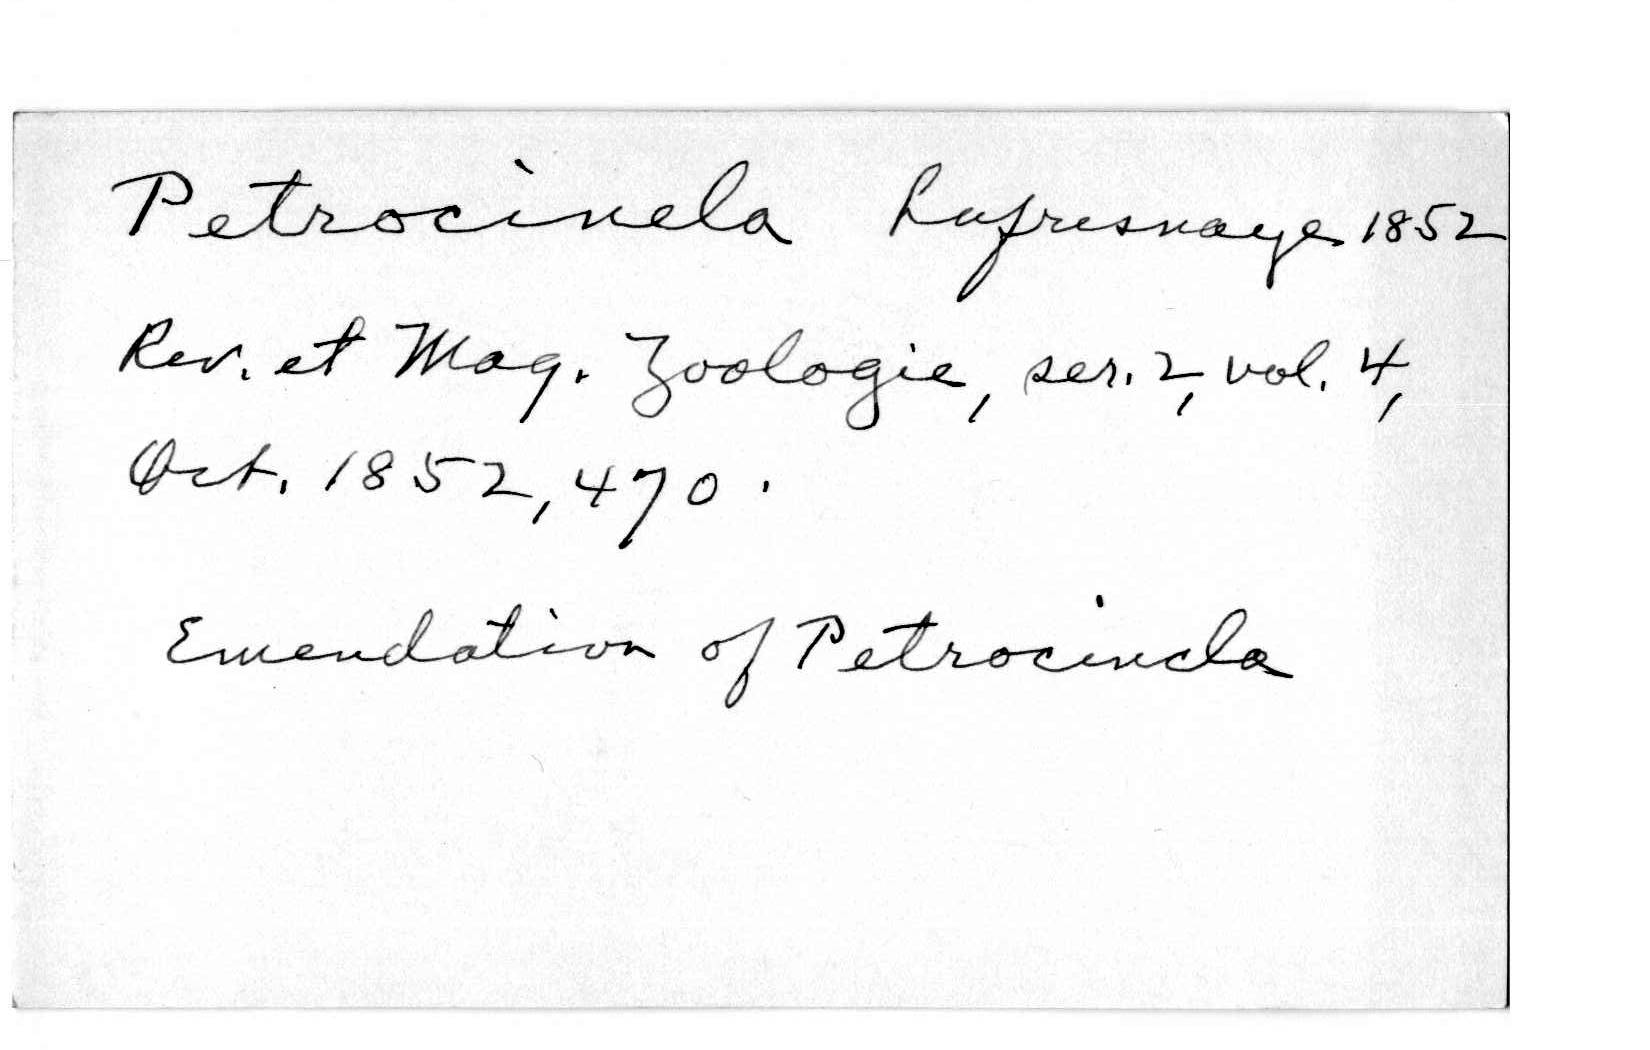 Petrocinela Lafresnaye 1852
Rev. et Mag. Zoologie, ser. 2, vol. 4,
Oct. 1852, 470.
Emendation of Petrocincla